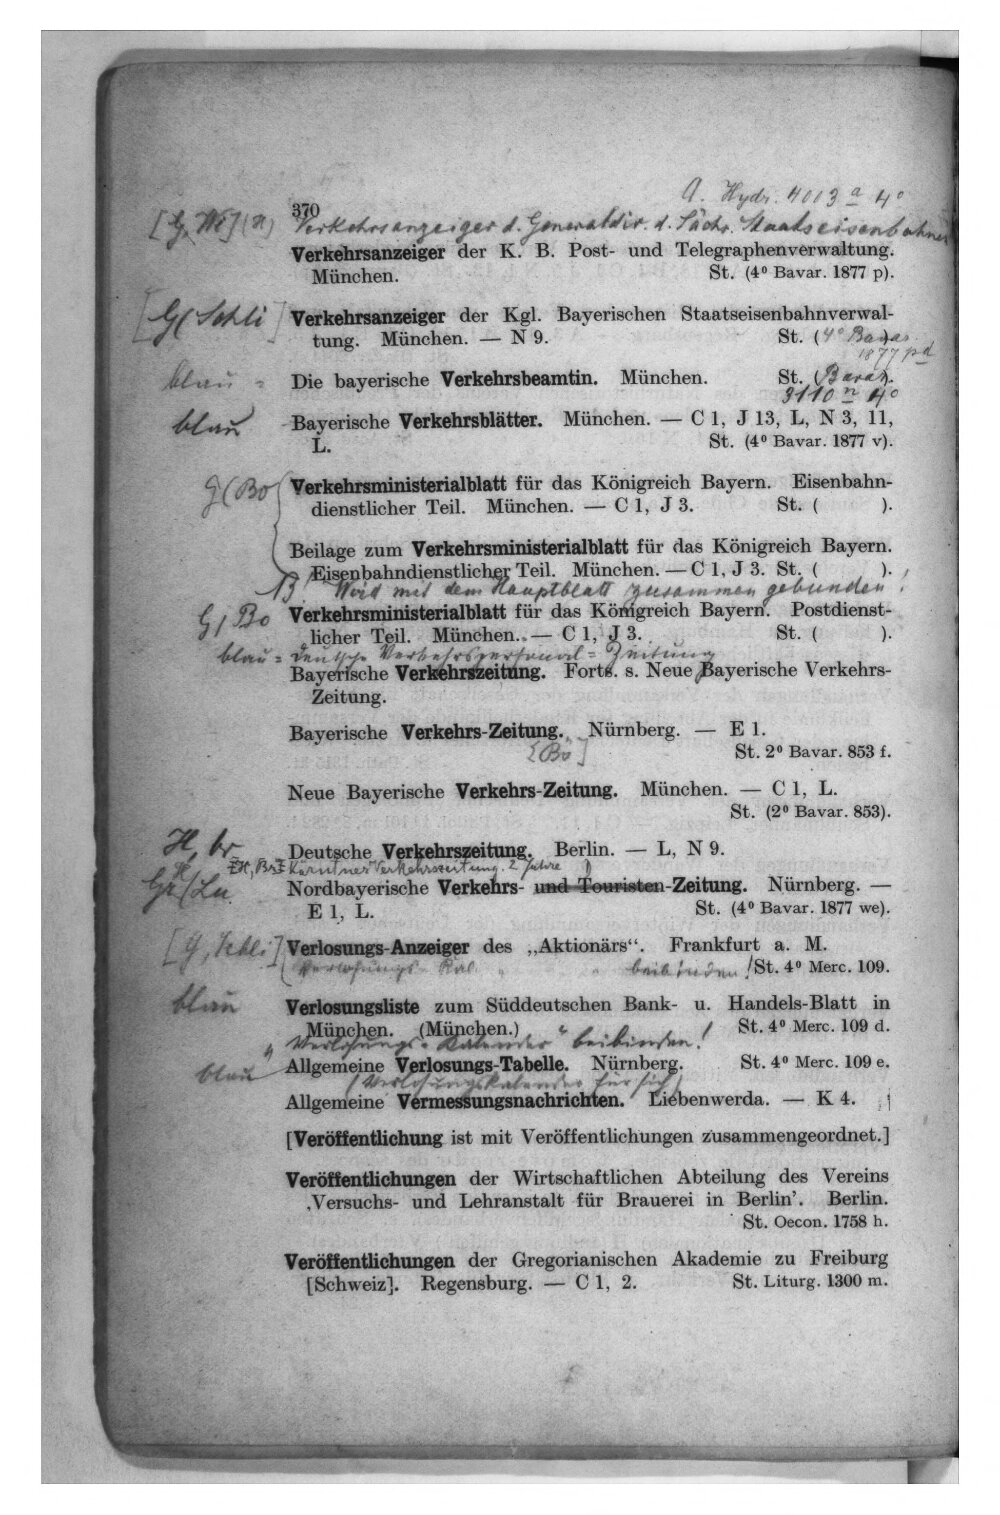 A. Hydr. 4013 a 4o
370
[G, We] (H) Verkehrsanzeiger d. Generaldir. d. Sächs. Staatseisenbahnen
Verkehrsanzeiger der K. B. Post- und Telegraphenverwaltung.
München. St. (4o Bavar. 1877 p).
[G( Schli] Verkehrsanzeiger der Kgl. Bayerischen Staatseisenbahnverwal-
tung. München. — N 9. St. (4o Bavar.)
1877 pd
blau = Die bayerische Verkehrsbeamtin. München. St. (Bavar.).
3110 n 4o
blau Bayerische Verkehrsblätter. München. — C 1, J 13, L, N 3, 11,
L. St. (4o Bavar. 1877 v).
G(Bo Verkehrsministerialblatt für das Königreich Bayern. Eisenbahn-
dienstlicher Teil. München. — C 1, J 3. St. ( ).
Beilage zum Verkehrsministerialblatt für das Königreich Bayern.
Eisenbahndienstlicher Teil. München. — C 1, J 3. St. ( ).
B! Wird mit dem Hauptblatt zusammen gebunden!
G, Bo Verkehrsministerialblatt für das Königreich Bayern. Postdienst-
licher Teil. München. — C 1, J 3. St. ( ).
blau = Deutsche Verkehrspersonal = Zeitung
Bayerische Verkehrszeitung. Forts. s. Neue Bayerische Verkehrs-
Zeitung.
Bayerische Verkehrs-Zeitung. Nürnberg. — E 1.
[Bö] St. 2o Bavar. 853 f.
Neue Bayerische Verkehrs-Zeitung. München. — C 1, L.
St. (2o Bavar. 853).
H, br Deutsche Verkehrszeitung. Berlin. — L, N 9.
Kärntner Verkehrszeitung. 2 Jahre
Gr(Lu. Nordbayerische Verkehrs- und Touristen-Zeitung. Nürnberg. —
E 1, L. St. (4o Bavar. 1877 we).
[G, Schli] Verlosungs-Anzeiger des „Aktionärs“. Frankfurt a. M.
Verlosungs-Kal. beibinden! St. 4o Merc. 109.
blau Verlosungsliste zum Süddeutschen Bank- u. Handels-Blatt in
München. (München.) St. 4o Merc. 109 d.
„Verlosungs-Kalender“ beibinden!
blau Allgemeine Verlosungs-Tabelle. Nürnberg. St. 4o Merc. 109 e.
(Verlosungskalender für sich)
Allgemeine Vermessungsnachrichten. Liebenwerda. — K 4.
[Veröffentlichung ist mit Veröffentlichungen zusammengeordnet.]
Veröffentlichungen der Wirtschaftlichen Abteilung des Vereins
‚Versuchs- und Lehranstalt für Brauerei in Berlin’. Berlin.
St. Oecon. 1758 h.
Veröffentlichungen der Gregorianischen Akademie zu Freiburg
[Schweiz]. Regensburg. — C 1, 2. St. Liturg. 1300 m.